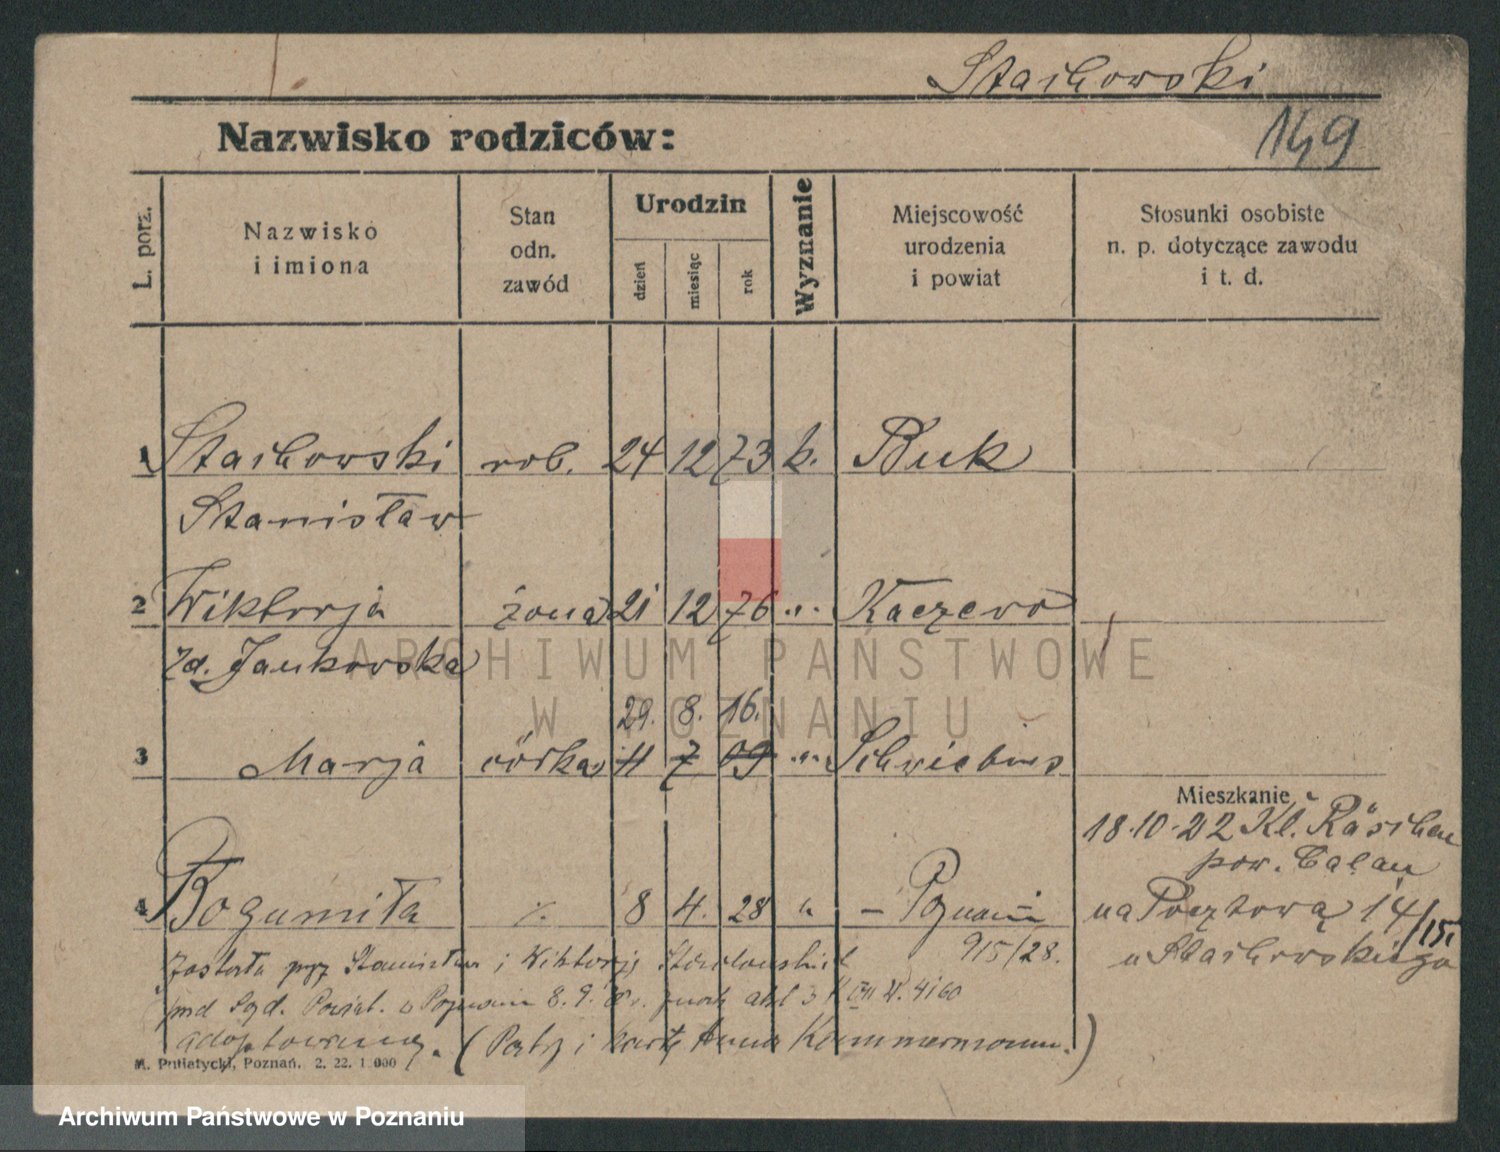 Stachowski
149
Nazwisko rodziców:
L. porz.
Nazwisko
i imiona
Stan
odn.
zawód
Urodzin
dzień
miesiąc
rok
Wyznanie
Miejscowość
urodzenia
i powiat
Stosunki osobiste
n. p. dotyczące zawodu
i t. d.
1 Stachowski rob. 24 12 73 k. Buk
Stanisław
2 Wiktorja żona 21 12 76 „ Kaczewo
zd. Jankowska
29. 8. 16.
3 Marja córka 11 7 09 „ Schwiebus
Mieszkanie
18.10.22 Kl. Räschen
pow. Calau
4 Bogumiła 8 4. 28 „ – Poznań
na Pocztową 14/15
915/28.
u Stachowskiego
została przez Stanisława i Wiktorję
Sąd. Powiat. w Poznaniu 8. 9.
adoptowaną. (Patrz i kartę Anna Kemmermann.)
M. Putiatycki, Poznań. 2. 22. 1.000
ARCHIWUM PAŃSTWOWE
W POZNANIU
Archiwum Państwowe w Poznaniu